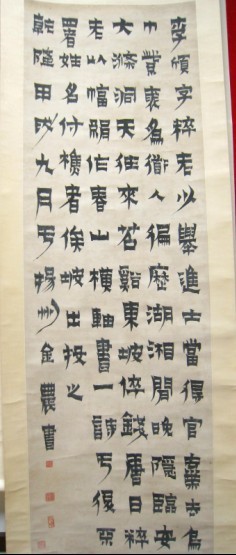 李頎字粹老少舉進士當得官棄去烏
巾裘為衜人徧歷湖湘間晚隱臨安
大滌洞天往來苕谿東坡倅錢唐日粹
老以幅絹作春山橫軸書一詩于後不
署姓名付樵者俟坡出投之
乾隆甲戌九月于揚州金農書